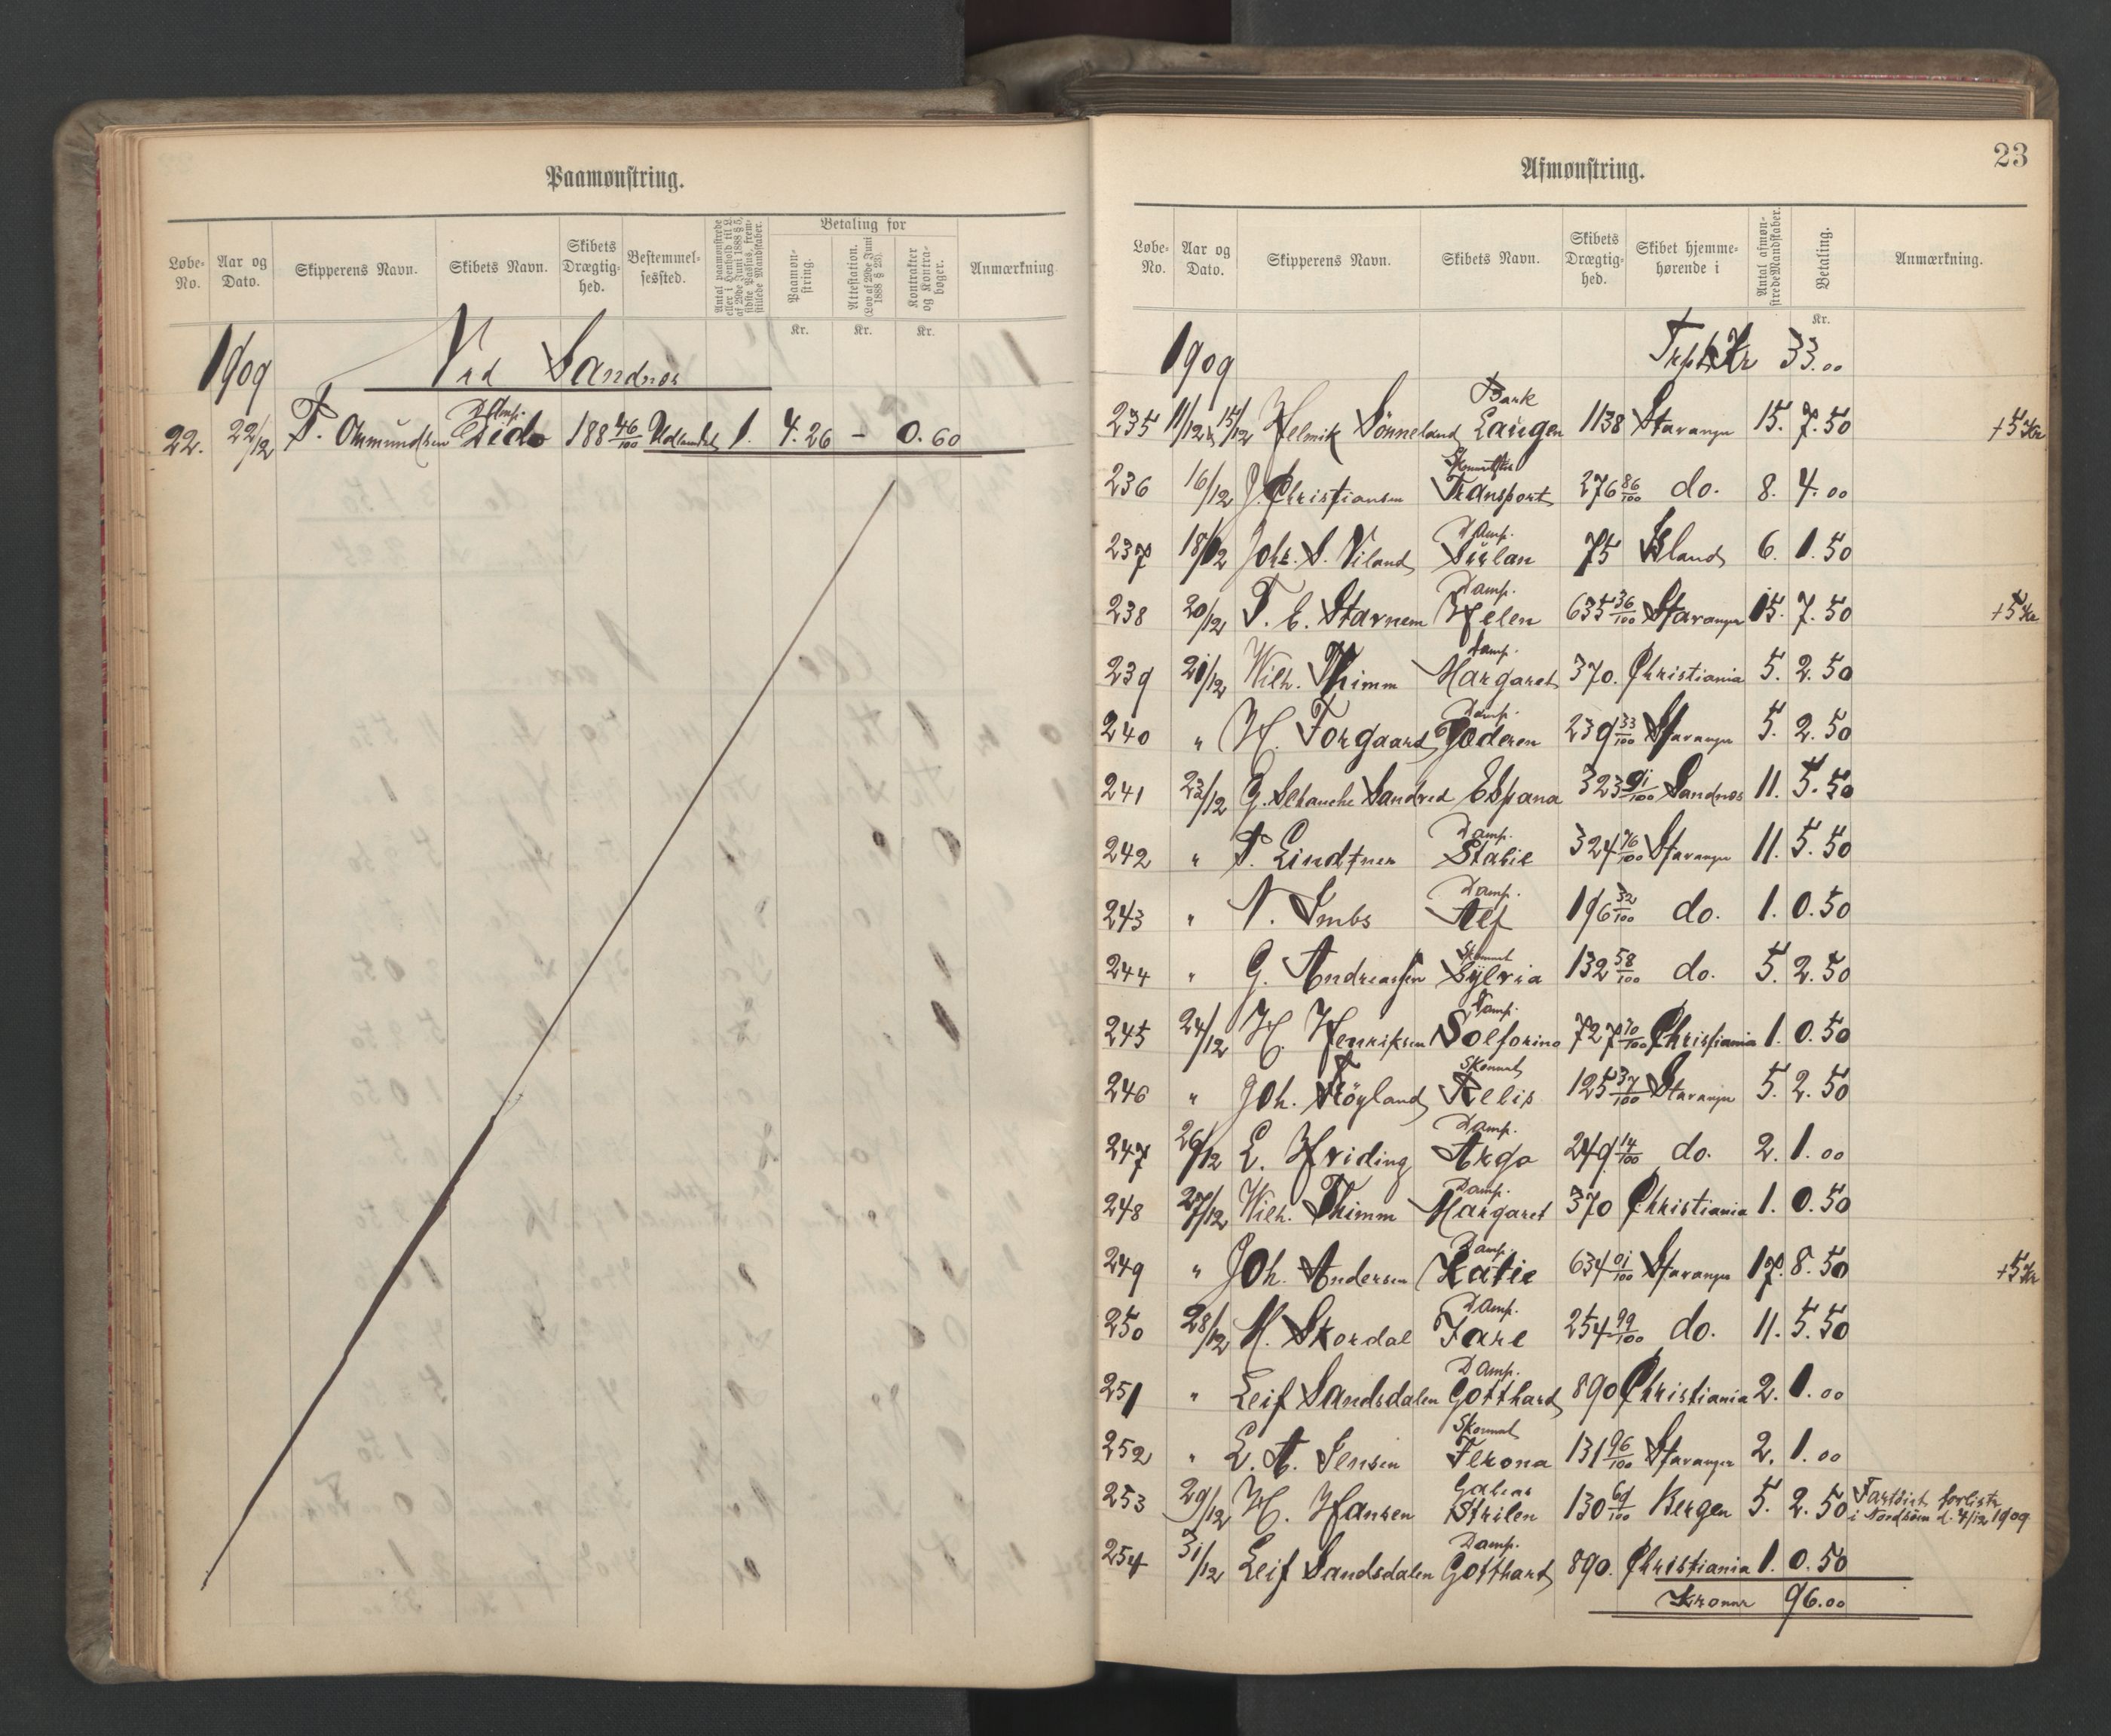 Paamønstring.
Løbe-No. Aar og Dato. Skipperens Navn. Skibets Navn. Skibets Drægtig-hed. Bestemmel-sessted. Antal paamønstrede eller i Henhold til L. af 29de Juni 1888 § 5, sidste Passus, frem-stillede Mandskaber. Betaling for Paamøn-string. Attestation. (Lov af 29de Juni 1888 § 23). Kontrakter og Kontra-bøger. Anmærkning
Kr. Kr. Kr.
1909 Ved Sandnes
22. 22/12 T. Osmundsen Damp. Dido 188 46/100 Udlandet 1. 4.26 – 0.60
Afmønstring.
23
Løbe-No. Aar og Dato. Skipperens Navn. Skibets Navn. Skibets Drægtig-hed. Skibet hjemme-hørende i Antal afmøn-strede Mandskaber. Betaling. Anmærkning.
Kr.
1909 Trpt Kr 33.00
235 11/12 & 15/12 Helmik Sønneland Bark Laugen 1138 Stavanger 15. 7.50 + 5 Kr
236 16/12 J. Christiansen Transport 276 86/100 do. 8. 4.00
237 18/12 Johs. S. Viland Damp. Sulan 75 Island 6. 1.50
238 20/12 T. E. Starnem Damp. Helen 635 36/100 Stavanger 15. 7.50 + 5 Kr
239 21/12 Wilh. Thimm Damp. Margaret 370. Christiania 5. 2.50
240 " H. Torgaard Damp. Jæderen 239 33/100 Stavanger 5. 2.50
241 23/12 G. Schanche Sandved Espana 323 91/100 Sandnes 11. 5.50
242 " T. Lindtner Damp. Stabil 324 76/100 Stavanger 11. 5.50
243 " N. Imbs Damp. Alf 196 32/100 do. 1. 0.50
244 " G. Andreassen Skonnert Sylvia 132 58/100 do. 5. 2.50
245 24/12 H. Henriksen Damp. Solforino 727 70/100 Christiania 1. 0.50
246 " Joh. Høyland Skonnert Relis 125 37/100 Stavanger 5. 2.50
247 26/12 L. Hviding Damp. Argo 249 14/100 do. 2. 1.00
248 27/12 Wilh. Thimm Damp. Margaret 370 Christiania 1. 0.50
249 " Joh. Andersen Damp. Katie 634 01/100 Stavanger 17. 8.50 + 5 Kr
250 28/12 M. Skordal Damp. Jarl 254 99/100 do. 11. 5.50
251 " Leif Sandsdalen Damp. Gotthard 890 Christiania 2. 1.00
252 " L. A. Jensen Skonnert Ferona 131 96/100 Stavanger 2. 1.00
253 29/12 H. Hansen Galeas Strilen 130 69/100 Bergen 5. 2.50 Fartøiet forliste
i Nordsøen d. 4/12 1909
254 31/12 Leif Sandsdalen Damp. Gotthard 890. Christiania 1. 0.50
Kroner 96.00